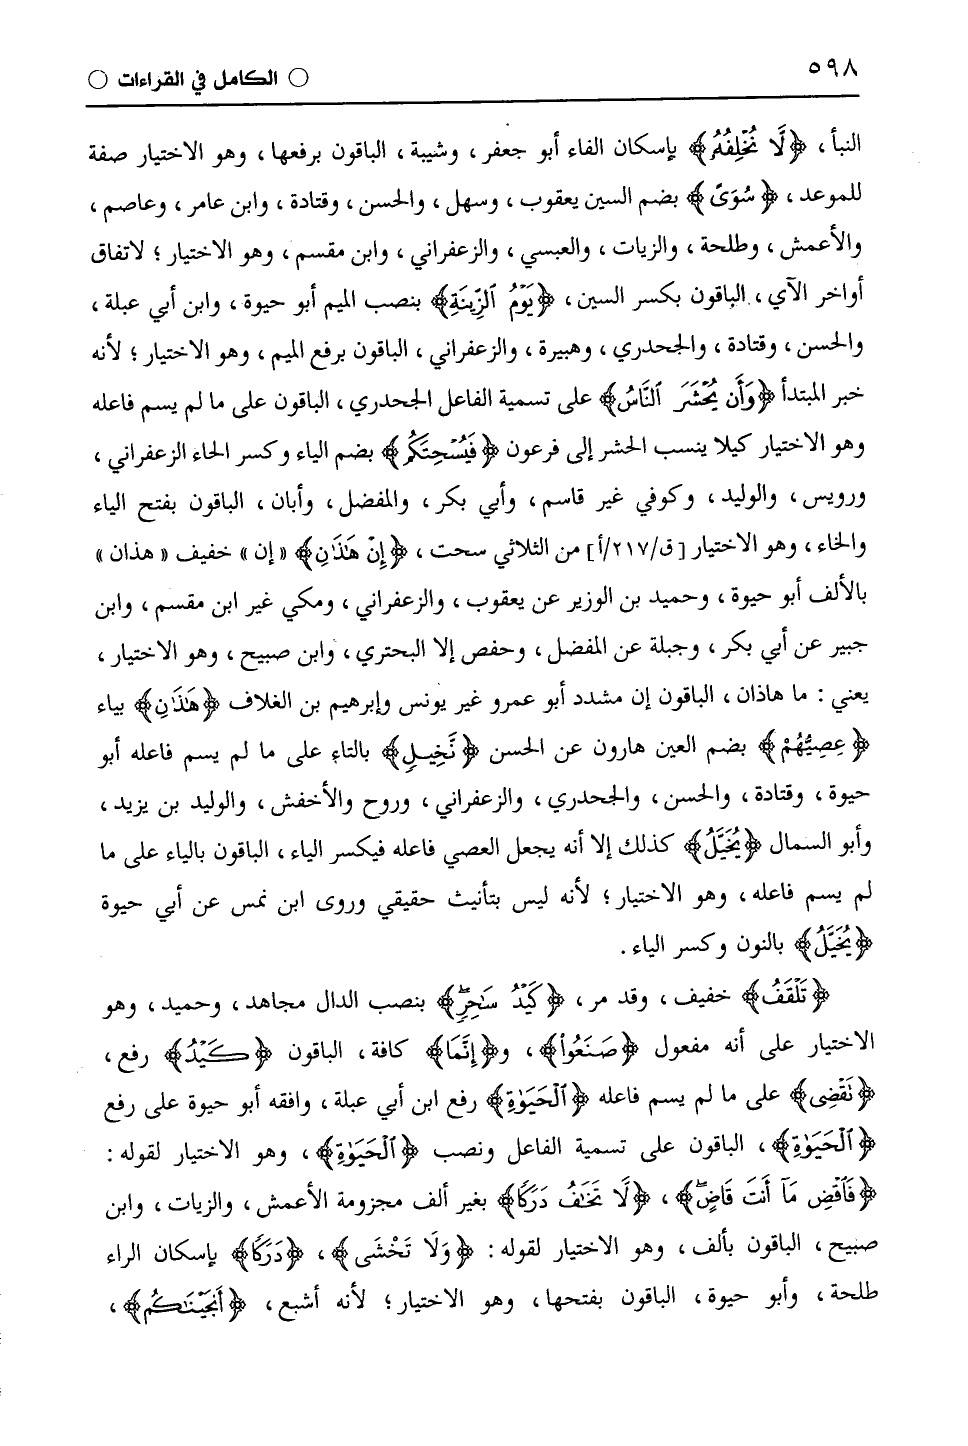 ٥٩٨
○ الكامل في القراءات ○
النبأ، ﴿لَّا نُخْلِفُهُ﴾ بإسكان الفاء أبو جعفر، وشيبة، الباقون برفعها، وهو الاختيار صفة
للموعد، ﴿سُوًى﴾ بضم السين يعقوب، وسهل، والحسن، وقتادة، وابن عامر، وعاصم،
والأعمش، وطلحة، والزيات، والعبسي، والزعفراني، وابن مقسم، وهو الاختيار؛ لاتفاق
أواخر الآي، الباقون بكسر السين، ﴿يَوْمُ ٱلزِّينَةِ﴾ بنصب الميم أبو حيوة، وابن أبي عبلة،
والحسن، وقتادة، والجحدري، وهبيرة، والزعفراني، الباقون برفع الميم، وهو الاختيار؛ لأنه
خبر المبتدأ ﴿وَأَن يُحْشَرَ ٱلنَّاسُ﴾ على تسمية الفاعل الجحدري، الباقون على ما لم يسم فاعله
وهو الاختيار كيلا ينسب الحشر إلى فرعون ﴿فَيُسْحِتَكُم﴾ بضم الياء وكسر الحاء الزعفراني،
ورويس، والوليد، وكوفي غير قاسم، وأبي بكر، والمفضل، وأبان، الباقون بفتح الياء
والخاء، وهو الاختيار [ق/٢١٧/أ] من الثلاثي سحت، ﴿إِنْ هَٰذَٰنِ﴾ «إن» خفيف «هذان»
بالألف أبو حيوة، وحميد بن الوزير عن يعقوب، والزعفراني، ومكي غير ابن مقسم، وابن
جبير عن أبي بكر، وجبلة عن المفضل، وحفص إلا البحتري، وابن صبيح، وهو الاختيار،
يعني: ما هاذان، الباقون إن مشدد أبو عمرو غير يونس وإبرهيم بن الغلاف ﴿هَٰذَٰنِ﴾ بياء
﴿عِصِيُّهُمْ﴾ بضم العين هارون عن الحسن ﴿نَّخِيلٍ﴾ بالتاء على ما لم يسم فاعله أبو
حيوة، وقتادة، والحسن، والجحدري، والزعفراني، وروح والأخفش، والوليد بن يزيد،
وأبو السمال ﴿يُخَيَّلُ﴾ كذلك إلا أنه يجعل العصي فاعله فيكسر الياء، الباقون بالياء على ما
لم يسم فاعله، وهو الاختيار؛ لأنه ليس بتأنيث حقيقي وروى ابن نمس عن أبي حيوة
﴿يُخَيَّلُ﴾ بالنون وكسر الياء.
﴿تَلْقَفْ﴾ خفيف، وقد مر، ﴿كَيْدُ سَٰحِرٍ ۖ﴾ بنصب الدال مجاهد، وحميد، وهو
الاختيار على أنه مفعول ﴿صَنَعُوا۟﴾، و﴿إِنَّمَا﴾ كافة، الباقون ﴿كَيْدُ﴾ رفع،
﴿نَقْضِى﴾ على ما لم يسم فاعله ﴿ٱلْحَيَوٰةِ﴾ رفع ابن أبي عبلة، وافقه أبو حيوة على رفع
﴿ٱلْحَيَوٰةِ﴾، الباقون على تسمية الفاعل ونصب ﴿ٱلْحَيَوٰةِ﴾، وهو الاختيار لقوله:
﴿فَٱقْضِ مَآ أَنتَ قَاضٍ ۖ﴾، ﴿لَّا تَخَٰفُ دَرَكًا﴾ بغير ألف مجزومة الأعمش، والزيات، وابن
صبيح، الباقون بألف، وهو الاختيار لقوله: ﴿وَلَا تَخْشَى﴾، ﴿دَرَكًا﴾ بإسكان الراء
طلحة، وأبو حيوة، الباقون بفتحها، وهو الاختيار؛ لأنه أشبع، ﴿أَنجَيْنَٰكُم﴾،